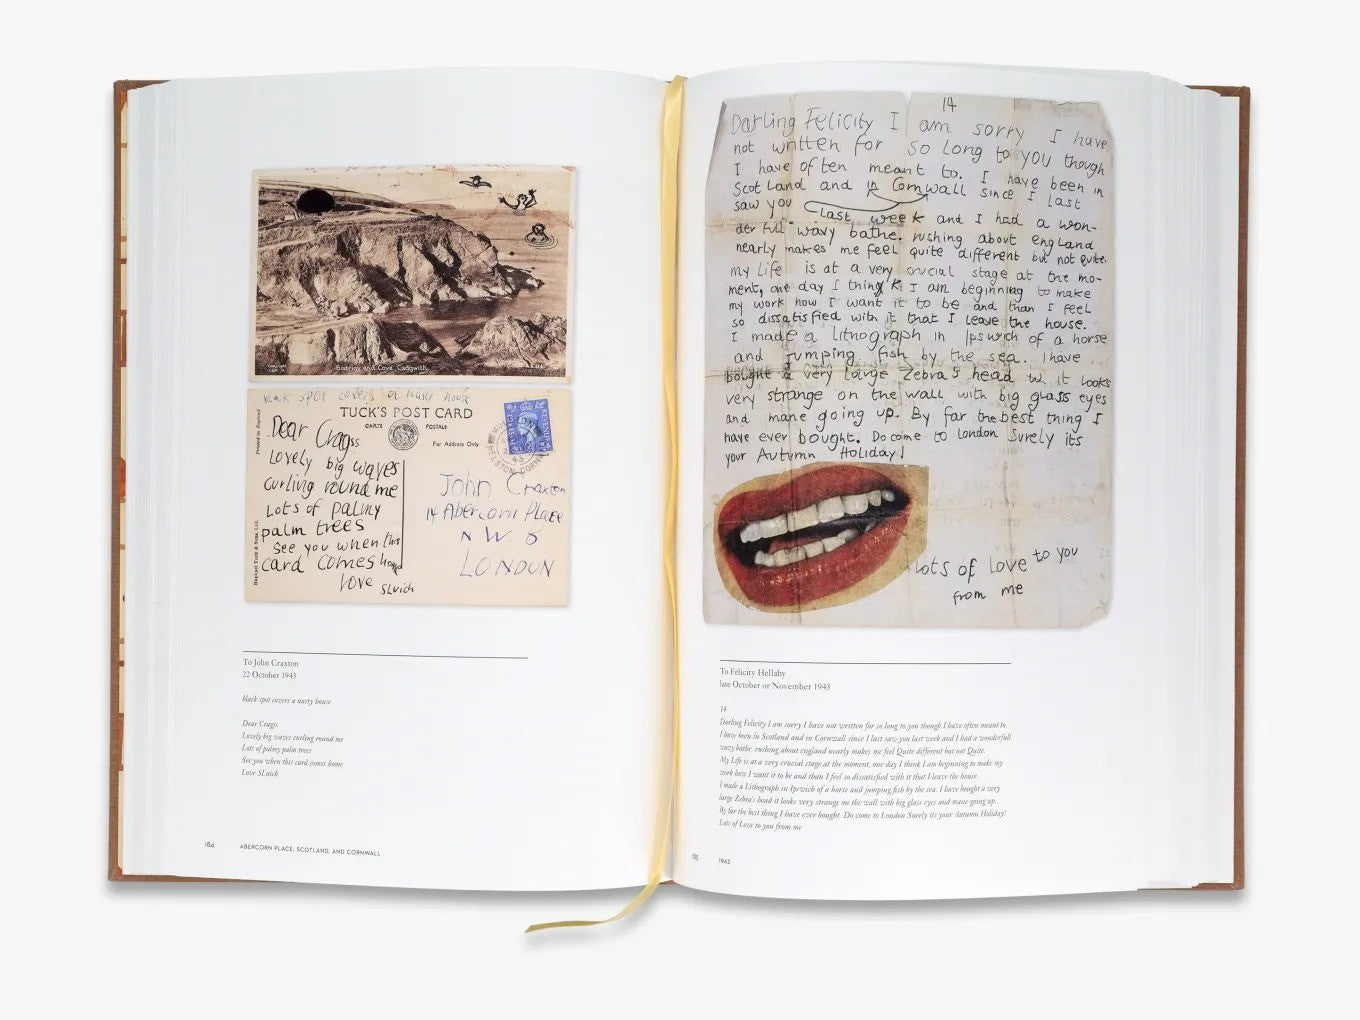 Copyright
Bodrigy and Cove, Cadgwith
black spot covers a nasty house
TUCK'S POST CARD
CARTE POSTALE
For Address Only
Printed in England
Raphael Tuck & Sons, Ltd.
Dear Craggs
Lovely big waves
curling round me
Lots of palmy
palm trees
See you when this
card comes home
love SLuich
John Craxton
14 Abercorn Place
N W 8
LONDON
To John Craxton
22 October 1943
black spot covers a nasty house
Dear Craggs
Lovely big waves curling round me
Lots of palmy palm trees
See you when this card comes home
Love SLuich
184 ABERCORN PLACE, SCOTLAND, AND CORNWALL
14
Darling Felicity I am sorry I have
not written for so long to you though
I have often meant to. I have been in
Scotland and in Cornwall since I last
saw you last week and I had a won-
derfull wavy bathe. rushing about england
nearly makes me feel quite different but not quite.
my Life is at a very crucial stage at the mo-
ment, one day I think I am beginning to make
my work how I want it to be and than I feel
so dissatisfied with it that I leave the house.
I made a Lithograph in Ipswich of a horse
and jumping fish by the sea. I have
bought a very large Zebra's head it looks
very strange on the wall with big glass eyes
and mane going up. By far the best thing I
have ever bought. Do come to London Surely its
your Autumn Holiday!
Lots of Love to you
from me
To Felicity Hellaby
late October or November 1943
14
Darling Felicity I am sorry I have not written for so long to you though I have often meant to
I have been in Scotland and in Cornwall since I last saw you last week and I had a wonderfull
wavy bathe rushing about england nearly makes me feel Quite different but not Quite.
My Life is at a very crucial stage at the moment, one day I think I am beginning to make my
work how I want it to be and than I feel so dissatisfied with it that I leave the house.
I made a Lithograph in Ipswich of a horse and jumping fish by the sea. I have bought a very
large Zebra's head it looks very strange on the wall with big glass eyes and mane going up.
By far the best thing I have ever bought. Do come to London Surely its your Autumn Holiday!
Lots of Love to you from me
185 1943